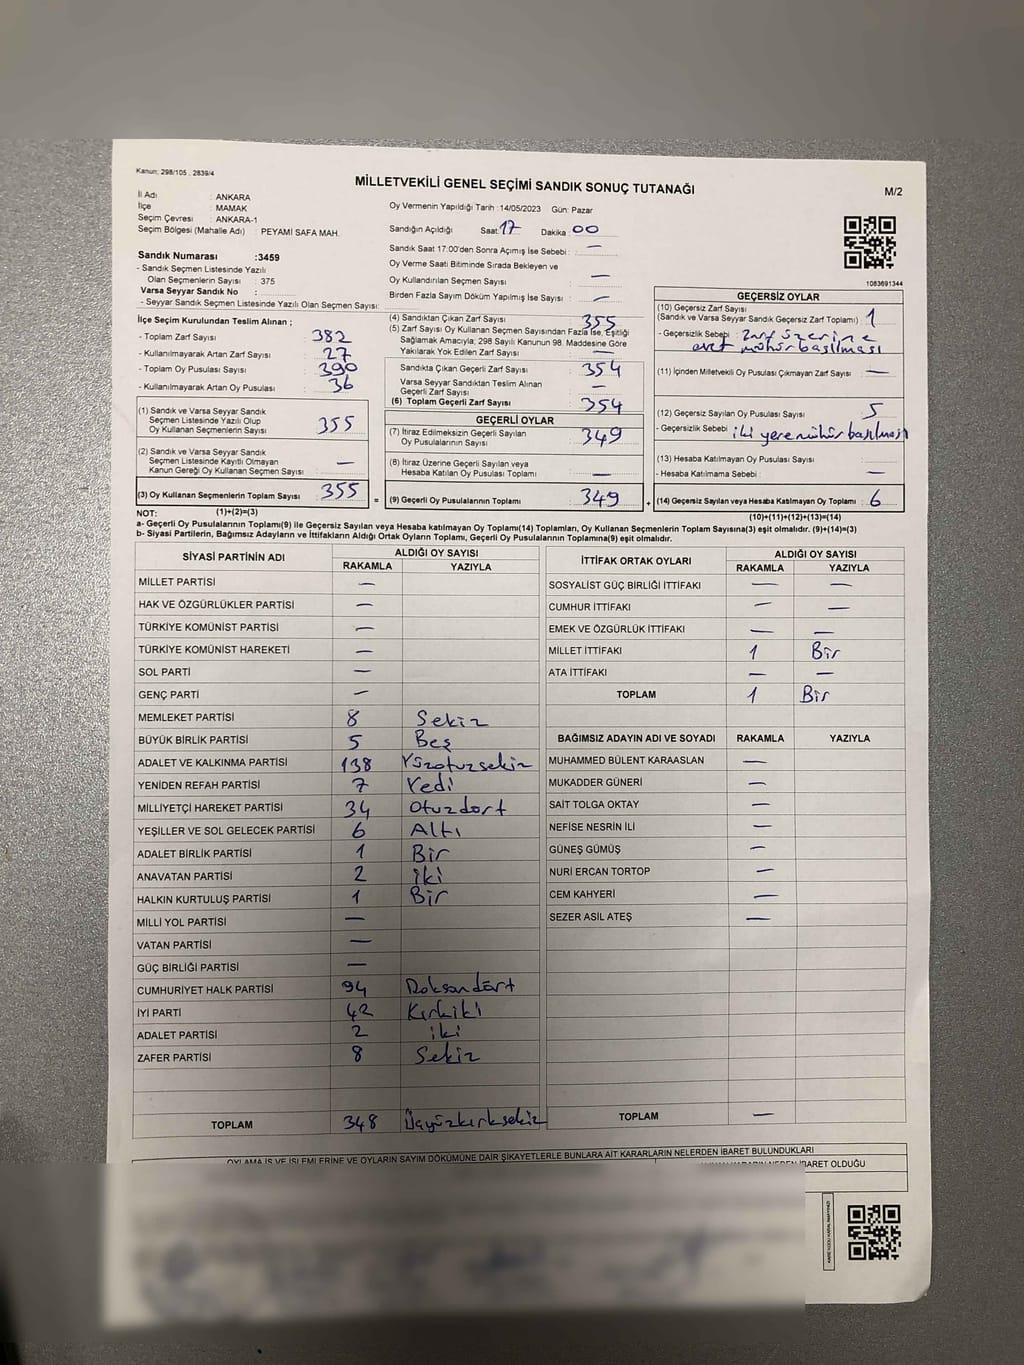 Kanun: 298/105 , 2839/4
MİLLETVEKİLİ GENEL SEÇİMİ SANDIK SONUÇ TUTANAĞI
M/2
İl Adı : ANKARA
İlçe : MAMAK
Seçim Çevresi : ANKARA-1
Seçim Bölgesi (Mahalle Adı) : PEYAMİ SAFA MAH.
Oy Vermenin Yapıldığı Tarih :14/05/2023 Gün: Pazar
Sandığın Açıldığı Saat: 17 Dakika: 00
Sandık Saat 17:00'den Sonra Açımış İse Sebebi : —
Oy Verme Saati Bitiminde Sırada Bekleyen ve
Oy Kullandırılan Seçmen Sayısı : —
Birden Fazla Sayım Döküm Yapılmış İse Sayısı : —
Sandık Numarası :3459
- Sandık Seçmen Listesinde Yazılı
Olan Seçmenlerin Sayısı : 375
Varsa Seyyar Sandık No :
- Seyyar Sandık Seçmen Listesinde Yazılı Olan Seçmen Sayısı:
1083691344
İlçe Seçim Kurulundan Teslim Alınan ;
- Toplam Zarf Sayısı : 382
- Kullanılmayarak Artan Zarf Sayısı : 27
- Toplam Oy Pusulası Sayısı : 390
- Kullanılmayarak Artan Oy Pusulası : 36
(1) Sandık ve Varsa Seyyar Sandık
Seçmen Listesinde Yazılı Olup
Oy Kullanan Seçmenlerin Sayısı : 355
(2) Sandık ve Varsa Seyyar Sandık
Seçmen Listesinde Kayıtlı Olmayan
Kanun Gereği Oy Kullanan Seçmen Sayısı : —
(3) Oy Kullanan Seçmenlerin Toplam Sayısı : 355 =
(4) Sandıktan Çıkan Zarf Sayısı : 355
(5) Zarf Sayısı Oy Kullanan Seçmen Sayısından Fazla İse, Eşitliği
Sağlamak Amacıyla; 298 Sayılı Kanunun 98. Maddesine Göre
Yakılarak Yok Edilen Zarf Sayısı : —
Sandıkta Çıkan Geçerli Zarf Sayısı : 354
Varsa Seyyar Sandıktan Teslim Alınan
Geçerli Zarf Sayısı : —
(6) Toplam Geçerli Zarf Sayısı : 354
GEÇERLİ OYLAR
(7) İtiraz Edilmeksizin Geçerli Sayılan
Oy Pusulalarının Sayısı : 349
(8) İtiraz Üzerine Geçerli Sayılan veya
Hesaba Katılan Oy Pusulası Toplamı : —
(9) Geçerli Oy Pusulalarının Toplamı : 349 +
GEÇERSİZ OYLAR
(10) Geçersiz Zarf Sayısı
(Sandık ve Varsa Seyyar Sandık Geçersiz Zarf Toplamı) : 1
- Geçersizlik Sebebi : Zarf üzerine
evet mühür basılması
(11) İçinden Milletvekili Oy Pusulası Çıkmayan Zarf Sayısı : —
(12) Geçersiz Sayılan Oy Pusulası Sayısı : 5
- Geçersizlik Sebebi : iki yere mühür basılması
(13) Hesaba Katılmayan Oy Pusulası Sayısı :
- Hesaba Katılmama Sebebi : —
(14) Geçersiz Sayılan veya Hesaba Katılmayan Oy Toplamı : 6
NOT: (1)+(2)=(3)
(10)+(11)+(12)+(13)=(14)
a- Geçerli Oy Pusulalarının Toplamı(9) ile Geçersiz Sayılan veya Hesaba katılmayan Oy Toplamı(14) Toplamları, Oy Kullanan Seçmenlerin Toplam Sayısına(3) eşit olmalıdır. (9)+(14)=(3)
b- Siyasi Partilerin, Bağımsız Adayların ve İttifakların Aldığı Ortak Oyların Toplamı, Geçerli Oy Pusulalarının Toplamına(9) eşit olmalıdır.
SİYASİ PARTİNİN ADI ALDIĞI OY SAYISI
RAKAMLA YAZIYLA
MİLLET PARTİSİ —
HAK VE ÖZGÜRLÜKLER PARTİSİ —
TÜRKİYE KOMÜNİST PARTİSİ —
TÜRKİYE KOMÜNİST HAREKETİ —
SOL PARTİ —
GENÇ PARTİ —
MEMLEKET PARTİSİ 8 Sekiz
BÜYÜK BİRLİK PARTİSİ 5 Beş
ADALET VE KALKINMA PARTİSİ 138 Yüzotuzsekiz
YENİDEN REFAH PARTİSİ 7 Yedi
MİLLİYETÇİ HAREKET PARTİSİ 34 Otuzdört
YEŞİLLER VE SOL GELECEK PARTİSİ 6 Altı
ADALET BİRLİK PARTİSİ 1 Bir
ANAVATAN PARTİSİ 2 iki
HALKIN KURTULUŞ PARTİSİ 1 Bir
MİLLİ YOL PARTİSİ —
VATAN PARTİSİ —
GÜÇ BİRLİĞİ PARTİSİ —
CUMHURİYET HALK PARTİSİ 94 Doksandört
İYİ PARTİ 42 Kırkiki
ADALET PARTİSİ 2 iki
ZAFER PARTİSİ 8 Sekiz
TOPLAM 348 Üçyüzkırksekiz
İTTİFAK ORTAK OYLARI ALDIĞI OY SAYISI
RAKAMLA YAZIYLA
SOSYALİST GÜÇ BİRLİĞİ İTTİFAKI — —
CUMHUR İTTİFAKI — —
EMEK VE ÖZGÜRLÜK İTTİFAKI — —
MİLLET İTTİFAKI 1 Bir
ATA İTTİFAKI — —
TOPLAM 1 Bir
BAĞIMSIZ ADAYIN ADI VE SOYADI RAKAMLA YAZIYLA
MUHAMMED BÜLENT KARAASLAN —
MUKADDER GÜNERİ —
SAİT TOLGA OKTAY —
NEFİSE NESRİN İLİ —
GÜNEŞ GÜMÜŞ —
NURİ ERCAN TORTOP —
CEM KAHYERİ —
SEZER ASİL ATEŞ —
TOPLAM —
OYLAMA İŞ VE İŞLEMLERİNE VE OYLARIN SAYIM DÖKÜMÜNE DAİR ŞİKAYETLERLE BUNLARA AİT KARARLARIN NELERDEN İBARET BULUNDUKLARI
İBARET OLDUĞU